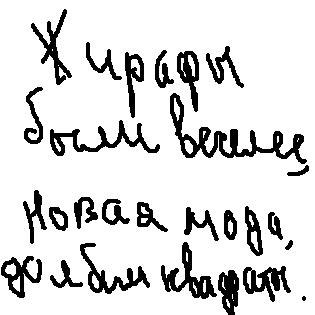 Жирафы
были веселее,
новая мода,
долбим квадраты.